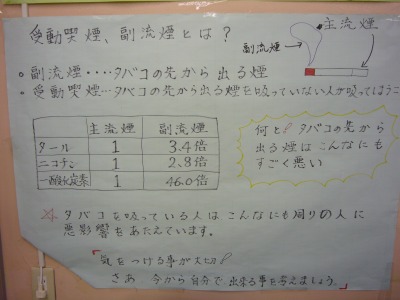 受動喫煙、副流煙とは?
主流煙
副流煙
。副流煙・・・・タバコの先から出る煙
。受動喫煙…タバコの先から出る煙を吸っていない人が吸ってしまうこ
主流煙 副流煙
タール 1 3.4倍
ニコチン 1 2.8倍
一酸化炭素 1 46.0倍
何と!タバコの先から
出る煙はこんなにも
すごく悪い
☆タバコを吸っている人はこんなにも周りの人に
悪影響をあたえています。
「気をつける事が大切!
さあ 今から自分で出来る事を考えましょう。」